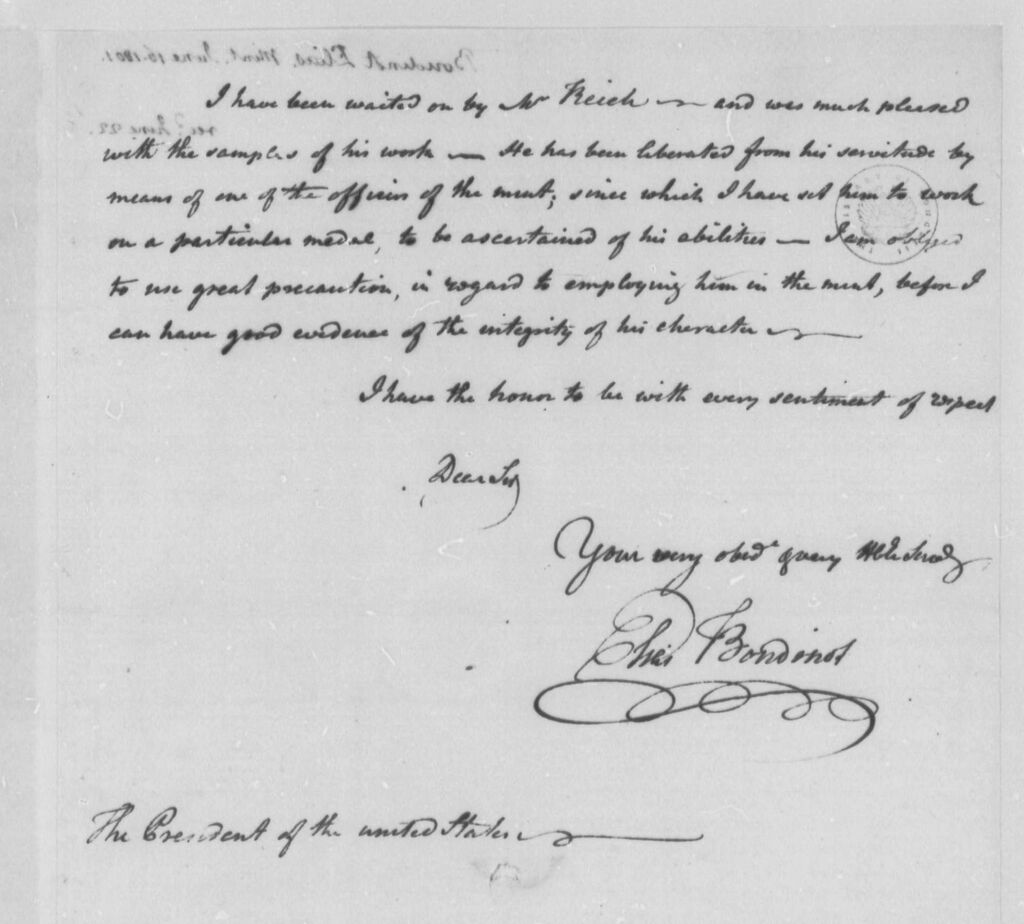 Boudinot Elias. Mint. June 16. 1801.
I have been waited on by Mr Reich — and was much pleased
recd. June 22.
with the samples of his work — He has been liberated from his servitude by
means of one of the officers of the mint; since which I have set him to work
on a particular medal, to be ascertained of his abilities — I am obliged
to use great precaution, in regard to employing him in the mint, before I
can have good evidence of the integrity of his character —
I have the honor to be with every sentiment of respect
Dear Sir
Your very obedt. & very Hble Servt
Elias Boudinot
The President of the united States —